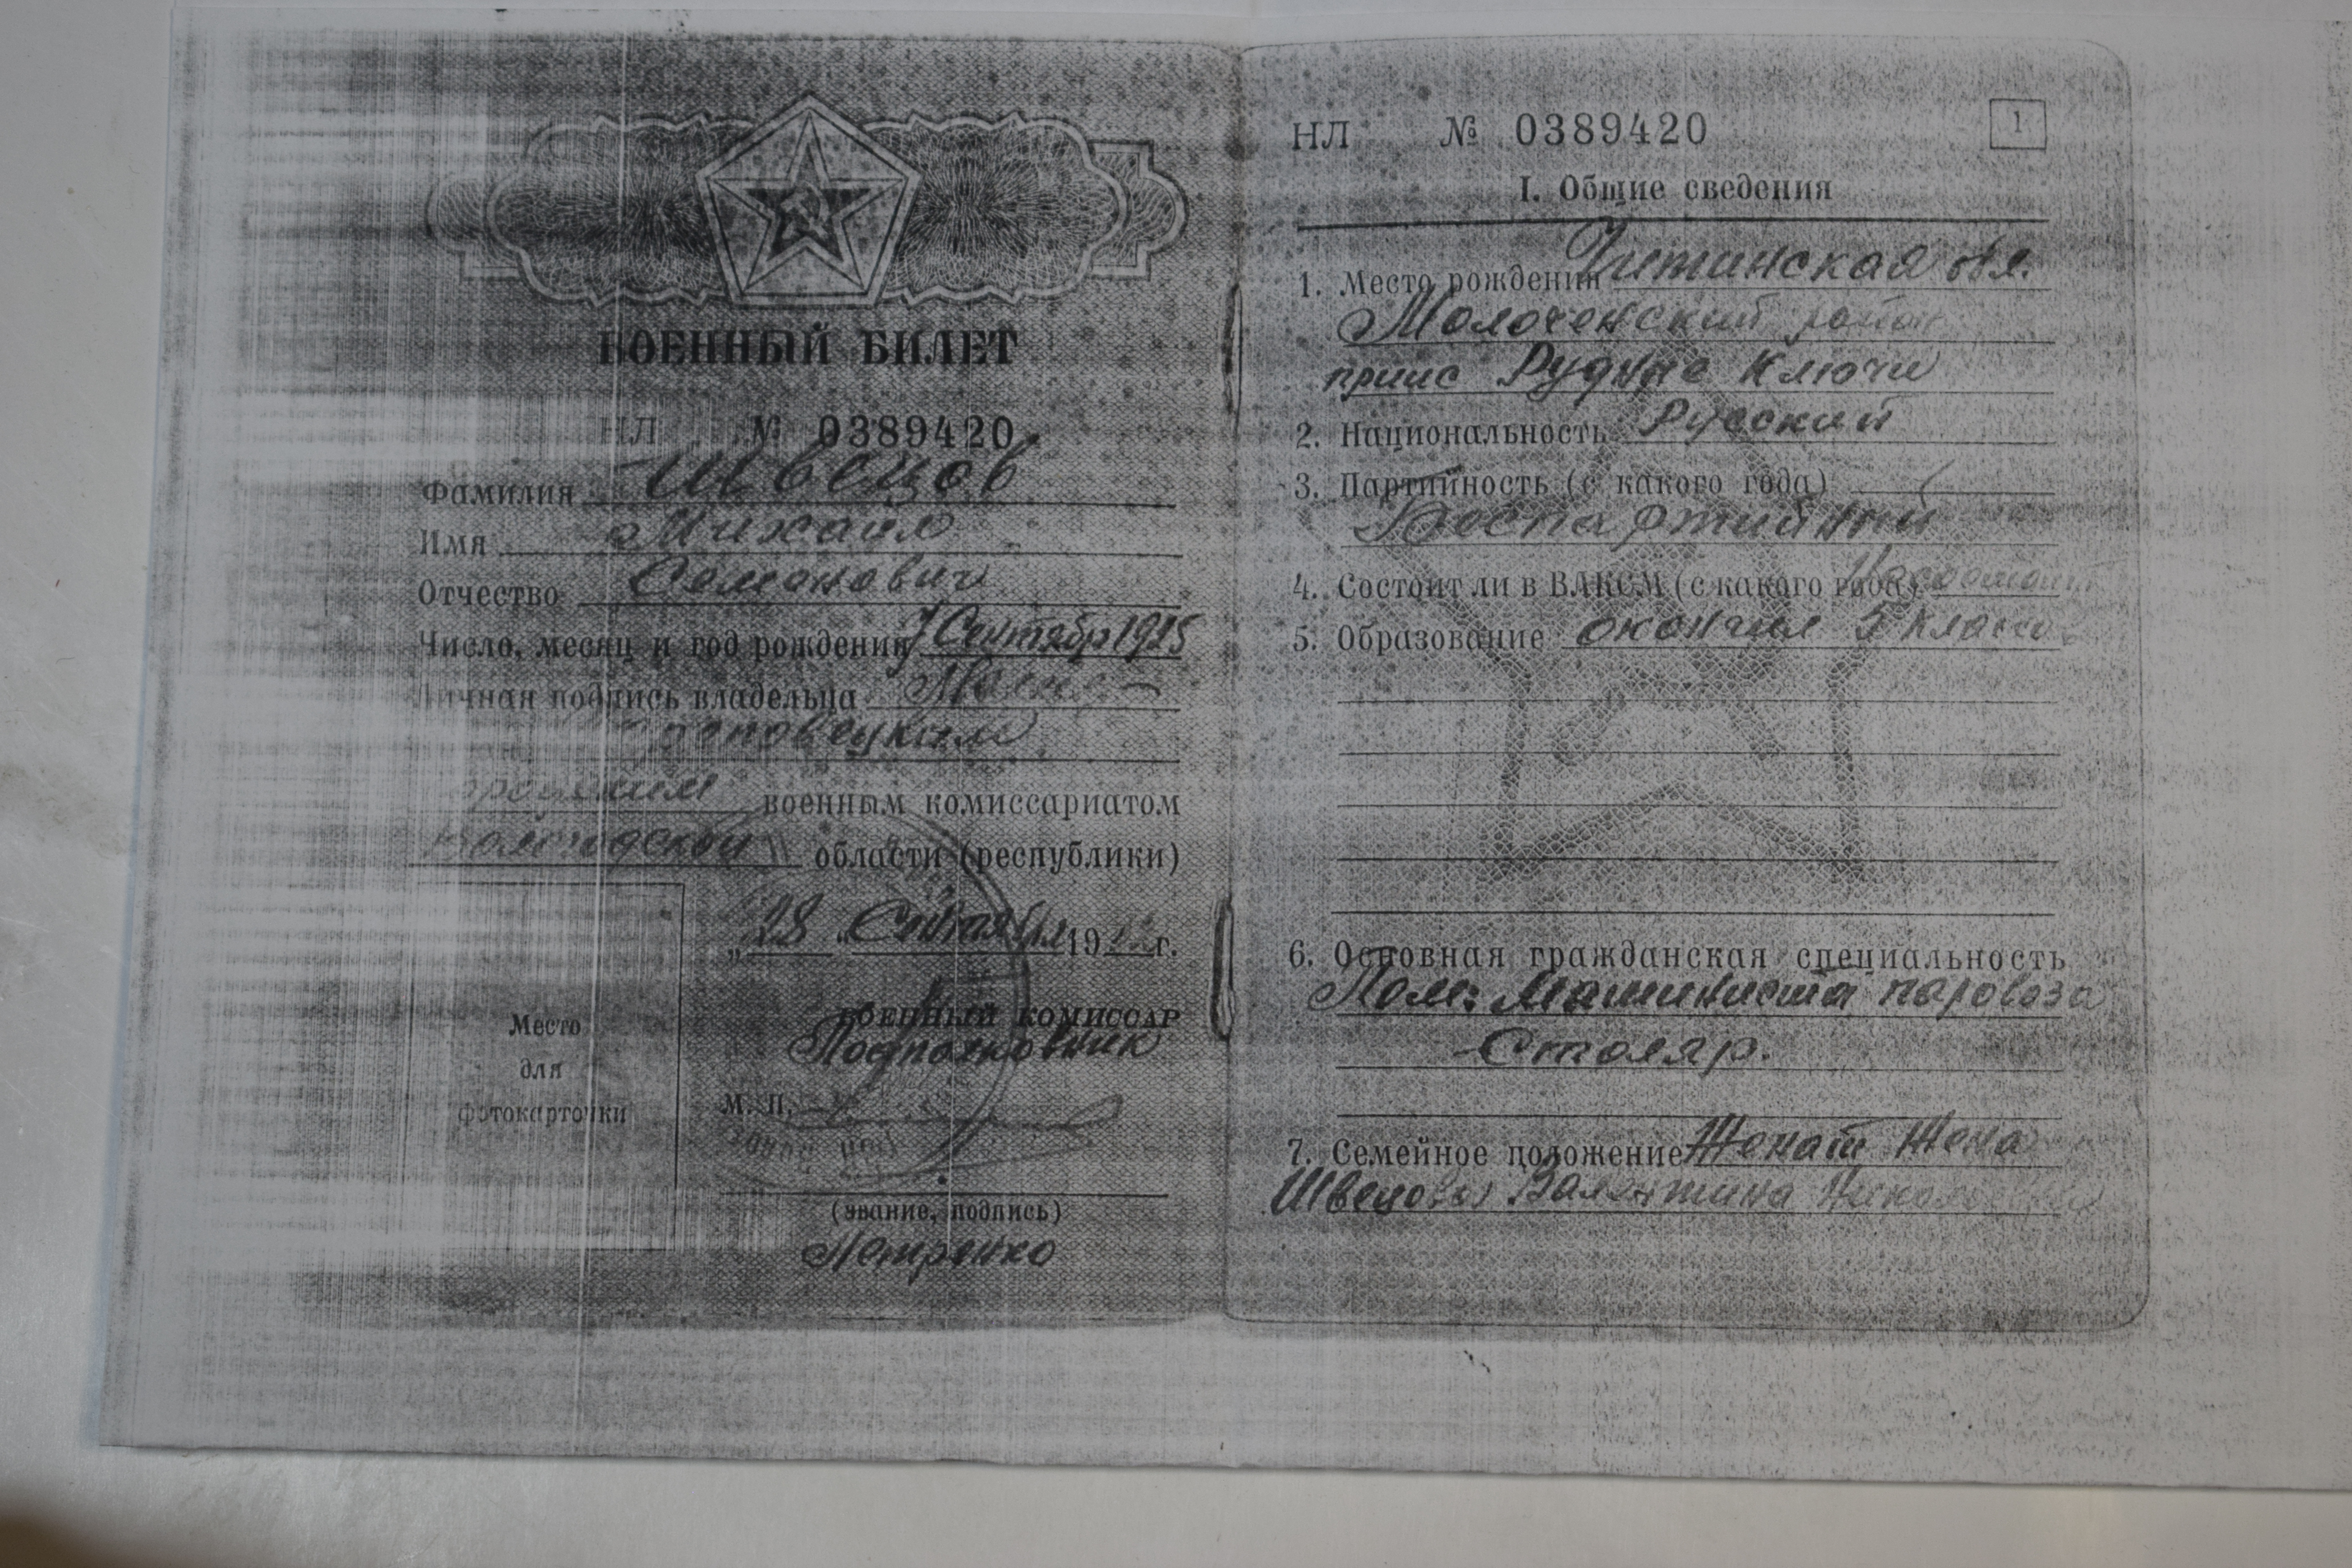 ВОЕННЫЙ БИЛЕТ
НЛ № 0389420
Фамилия Швецов
Имя Михаил
Отчество Семенович
Число, месяц и год рождения 7 Сентябр 1925
Личная подпись владельца
Череповецким
городским военным комиссариатом
Вологодской области (республики)
„28 " Сентября 19 г.
Место
для
фотокарточки
ВОЕННЫЙ КОМИССАР
Подполковник
М. П.
(звание, подпись)
Петренко
НЛ № 0389420
1
I. Общие сведения
1. Место рождения Читинская обл.
Молоченский район
приис Рудные Ключи
2. Национальность Русский
3. Партийность (с какого года)
Беспартийный
4. Состоит ли в ВЛКСМ (с какого года)
5. Образование окончил 5 классов
6. Основная гражданская специальность
Пом: Машиниста паровоза
-Столяр.
7. Семейное положение Женат Жена
Швецова Валентина